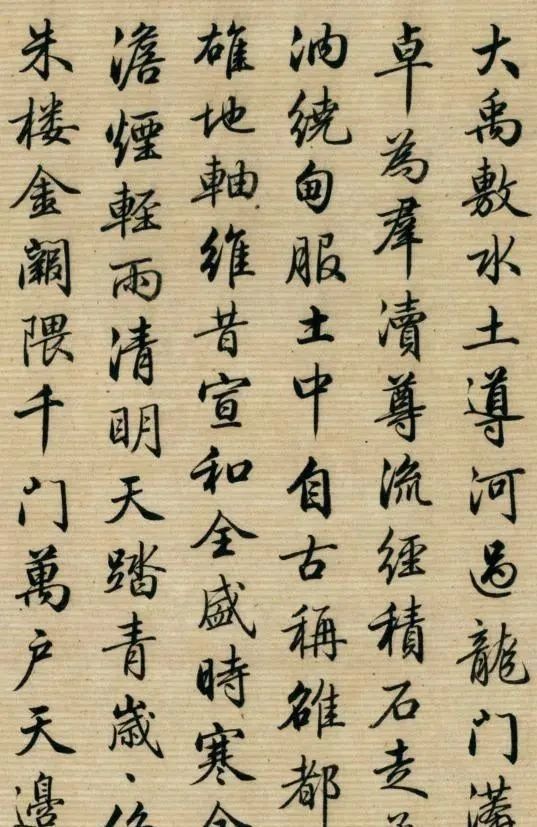 大禹敷水土導河過龍門
卓為羣瀆尊流經積石走
汭繞甸服土中自古稱雒都
雄地軸維昔宣和全盛時寒
澹煙輕雨清明天踏青歲〻
朱楼金闕隈千門萬户天邊